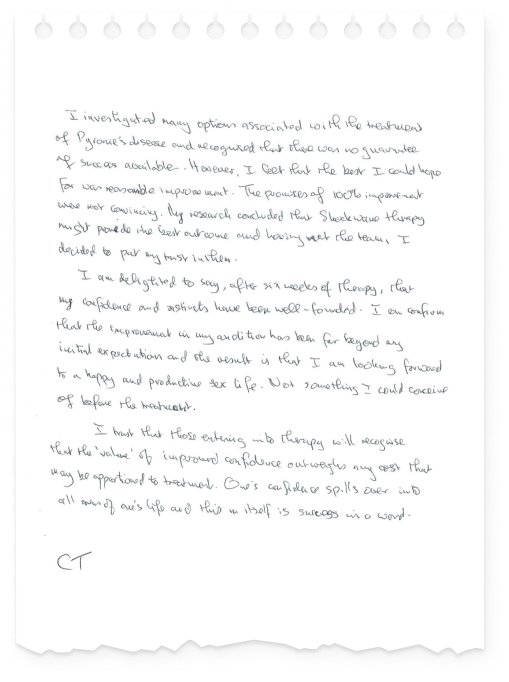 I investigated many options associated with the treatment
of Pyrome's disease and recognised that there was no guarantee
of success available. However, I feel that the best I could hope
for was reasonable improvement. The promises of 100% improvement
were not convincing. My research concluded that Shockwave therapy
might provide the best outcome and having met the team, I
decided to put my trust in them.
I am delighted to say, after six weeks of therapy, that
my confidence and instincts have been well-founded. I can confirm
that the improvement in my condition has been far beyond my
initial expectation and the result is that I am looking forward
to a happy and productive sex life. Not something I could conceive
of before the treatment.
I trust that those entering into therapy will recognise
that the 'value' of improved confidence outweighs any cost that
may be apportioned to treatment. One's confidence spills over into
all areas of one's life and this in itself is success in a word.
CT